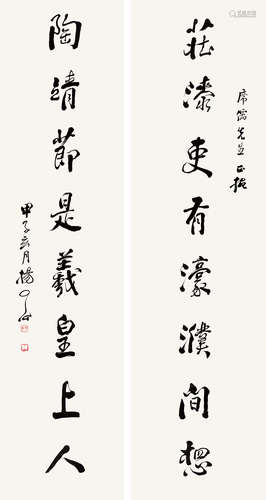 席儒先生正
莊漆吏有濠濮間想
陶靖節是羲皇上人
甲子月楊